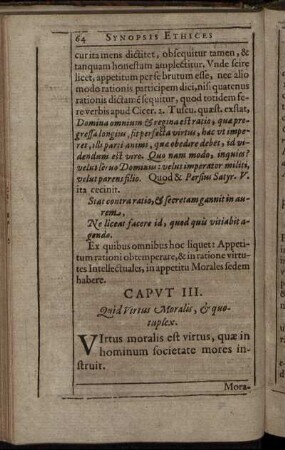 64 SYNOPSIS ETHICES
cur ita mens dictitet, obsequitur tamen, &
tanquam honestum amplectitur, Vnde scire
licet, appetitum per se brutum esse, nec alio
modo rationis participem dici, nisi quatenus
rationis dictam ẽ sequitur, quod totidem fe-
re verbis apud Cicer. 2. Tuscu. quæst. exstat,
Domina omnium & regina est ratio, quæ pro-
gressa longius, fit perfecta virtus, hæc vt impe-
ret, illi parti animi, quæ obedire debet, id vi-
dendum est viro. Quo nam modo, inquies?
velut seruo Dominus: velut imperator militi,
velut parens filio. Quod & Persius Satyr. V.
ita cecinit.
Stat contra ratio, & secretam gannit in au-
rem,
Ne liceat facere id, quod quis vitiabit a-
gendo.
Ex quibus omnibus hoc liquet: Appeti-
tum rationi obtemperare, & in ratione virtu-
tes Intellectuales, in appetitu Morales sedem
habere.
CAPVT III.
Quid Virtus Moralis, & quo-
tuplex.
VIrtus moralis est virtus, quæ in
hominum societate mores in-
struit.
Mora-